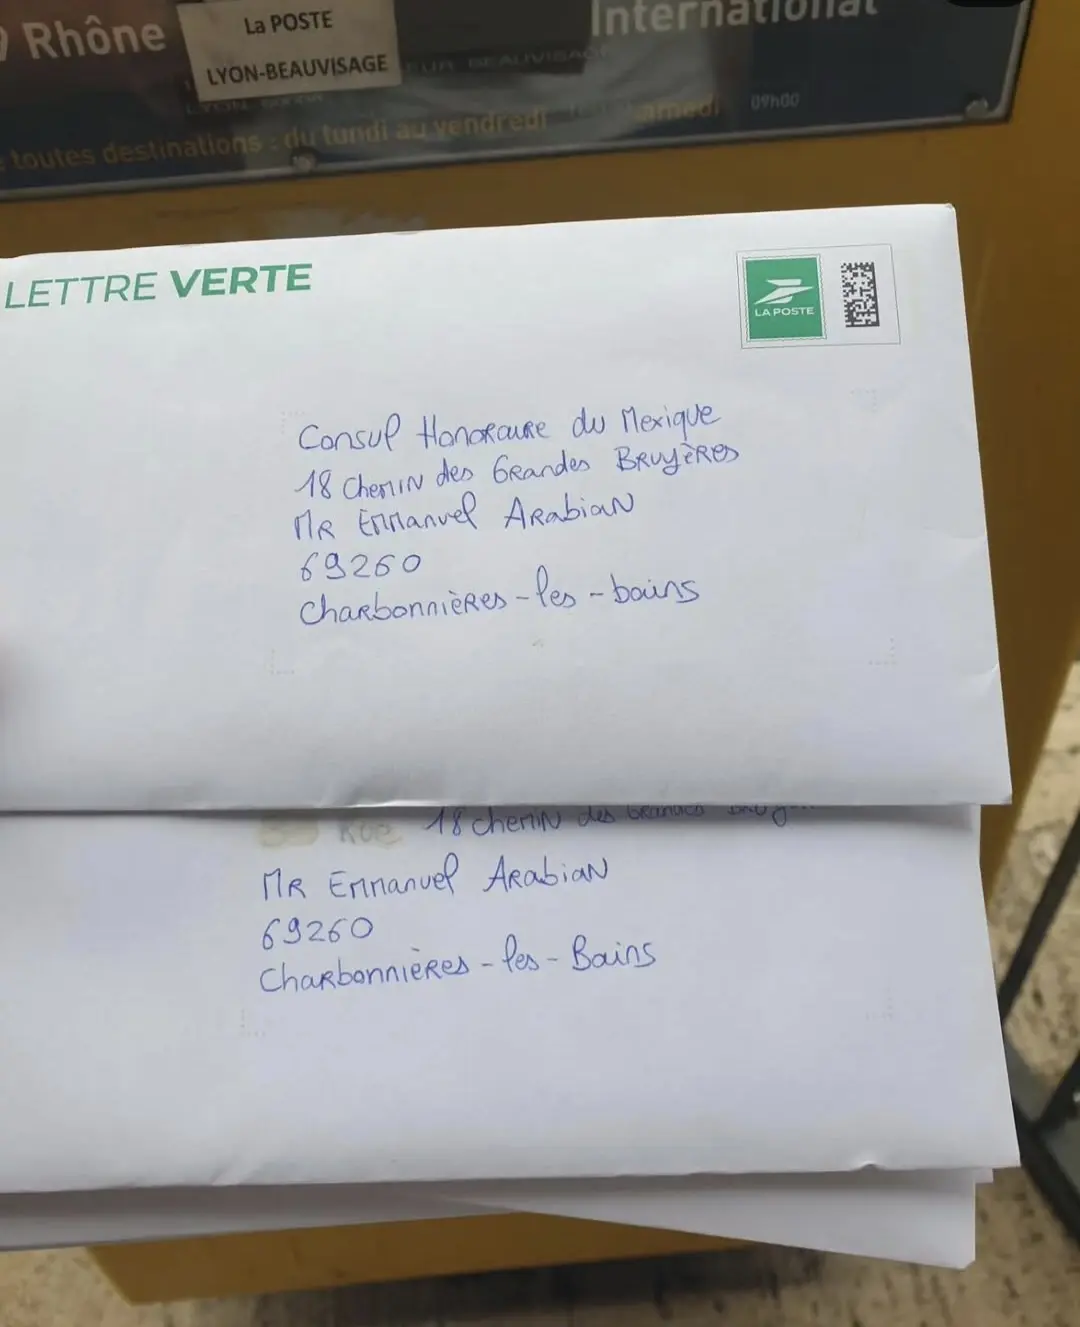 Rhône
La POSTE
LYON-BEAUVISAGE
International
toutes destinations : du lundi au vendredi
samedi
09h00
LETTRE VERTE
LA POSTE
Consul Honoraire du Mexique
18 Chemin des Grandes Bruyères
Mr Emmanuel Arabian
69260
Charbonnières-les-bains
Rue 18 chemin des Grandes
Mr Emmanuel Arabian
69260
Charbonnières-les-Bains